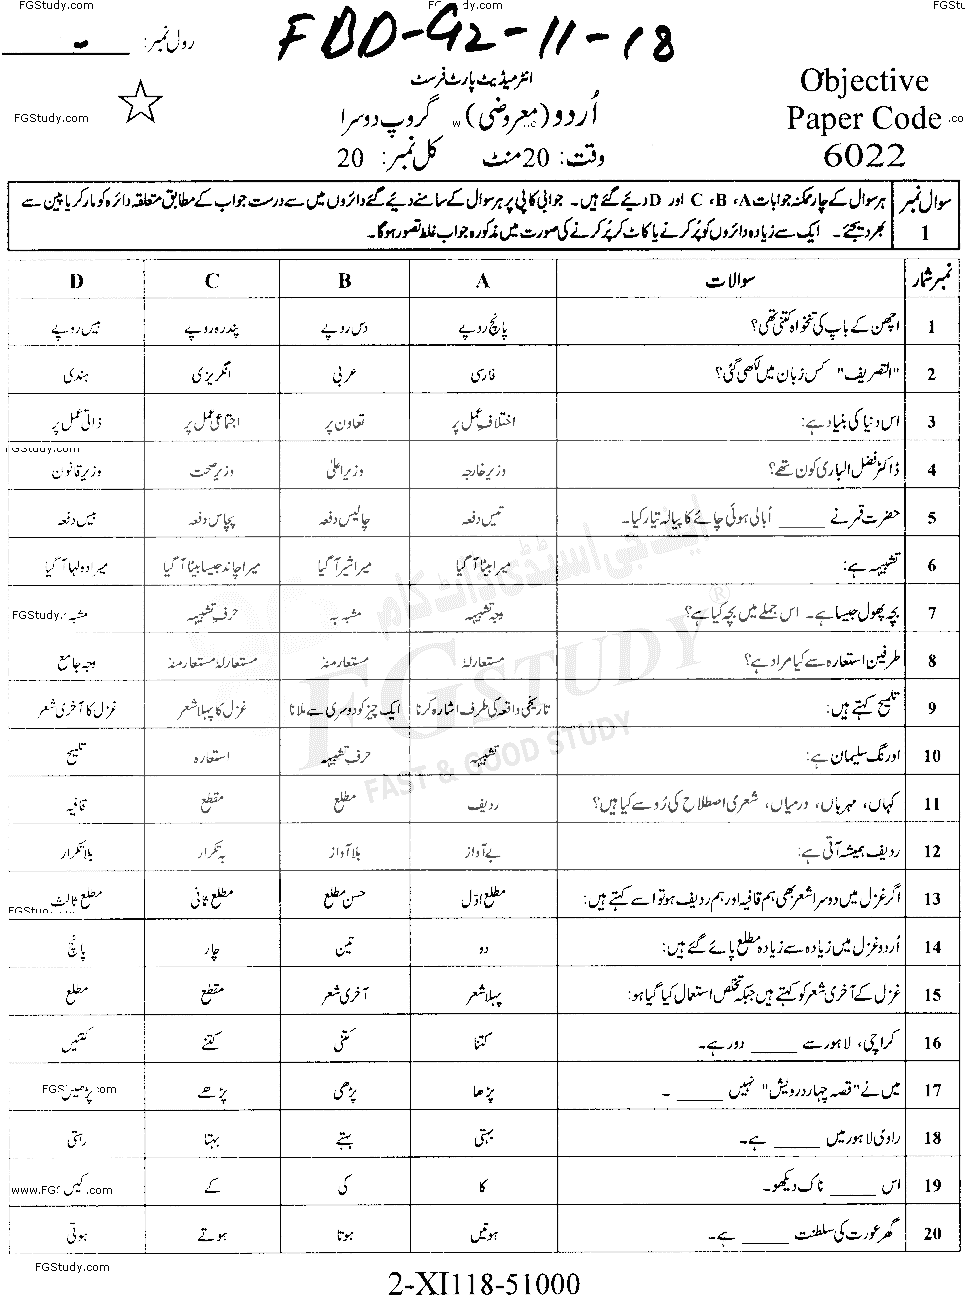 FGStudy.com
FGStudy.com
FGStu
FBD-G2-11-18
رول نمبر:
انٹرمیڈیٹ پارٹ فرسٹ
Objective
Paper Code
6022
FGStudy.com
.co
اُردو (معروضی) گروپ دوسرا
وقت: 20 منٹ کل نمبر: 20
سوال نمبر 1
ہر سوال کے چار ممکنہ جوابات A، B، C اور D دیے گئے ہیں۔ جوابی کاپی پر ہر سوال کے سامنے دیے گئے دائروں میں سے درست جواب کے مطابق متعلقہ دائرہ کو مارکر یا پین سے
بھر دیجئے۔ ایک سے زیادہ دائروں کو پُر کرنے یا کاٹ کر پُر کرنے کی صورت میں مذکورہ جواب غلط تصور ہوگا۔
نمبر شمار سوالات A B C D
1 اچھن کے باپ کی تنخواہ کتنی تھی؟ پانچ روپے دس روپے پندرہ روپے بیس روپے
2 "التصریف" کس زبان میں لکھی گئی؟ فارسی عربی انگریزی ہندی
3 اس دنیا کی بنیاد ہے: اختلافِ عمل پر تعاون پر اجتماعی عمل پر ذاتی عمل پر
FGStudy.com
4 ڈاکٹر فضل الباری کون تھے؟ وزیر خارجہ وزیر اعلیٰ وزیر صحت وزیر قانون
5 حضرت قمر نے _____ اُبالی ہوئی چائے کا پیالہ تیار کیا۔ تیس دفعہ چالیس دفعہ پچاس دفعہ بیس دفعہ
6 تشبیہہ ہے: میرا بیٹا آ گیا میرا شیر آ گیا میرا چاند جیسا بیٹا آ گیا میرا دولہا آ گیا
7 بچہ پھول جیسا ہے۔ اس جملے میں بچہ کیا ہے؟ وجہ تشبیہہ مشبہ بہ حرف تشبیہہ مشبہ
FGStudy.
8 طرفین استعارہ سے کیا مراد ہے؟ مستعارلہٗ مستعار منہٗ مستعارلہٗ مستعار منہٗ وجہ جامع
9 تلمیح کہتے ہیں: تاریخی واقعہ کی طرف اشارہ کرنا ایک چیز کو دوسری سے ملانا غزل کا پہلا شعر غزل کا آخری شعر
10 اورنگ سلیمان ہے: تشبیہہ حرف تشبیہہ استعارہ تلمیح
11 کہاں، مہرباں، درمیاں، شعری اصطلاح کی رُو سے کیا ہیں؟ ردیف مطلع مقطع قافیہ
12 ردیف ہمیشہ آتی ہے: بے آواز بلا آواز بہ تکرار بلا تکرار
13 اگر غزل میں دوسرا شعر بھی ہم قافیہ اور ہم ردیف ہو تو اسے کہتے ہیں: مطلع اوّل حسن مطلع مطلع ثانی مطلع ثالث
14 اُردو غزل میں زیادہ سے زیادہ مطلع پائے گئے ہیں: دو تین چار پانچ
15 غزل کے آخری شعر کو کہتے ہیں جبکہ تخلص استعمال کیا گیا ہو: پہلا شعر آخری شعر مقطع مطلع
16 کراچی، لاہور سے _____ دور ہے۔ کتنا کتنی کتنے کتنیں
17 میں نے "قصہ چہار درویش" نہیں _____ ۔ پڑھا پڑھی پڑھے پڑھیں
18 راوی لاہور میں _____ ہے۔ بہتی بہتے بہتا راہتی
19 اس _____ ناک دیکھو۔ کا کی کے کیں
20 گھر عورت کی سلطنت _____ ہے۔ ہوتیں ہوتا ہوتے ہوتی
ایف جی اسٹڈی ڈاٹ کام
FGSTUDY®
FAST & GOOD STUDY
FGStudy.com
2-XI118-51000